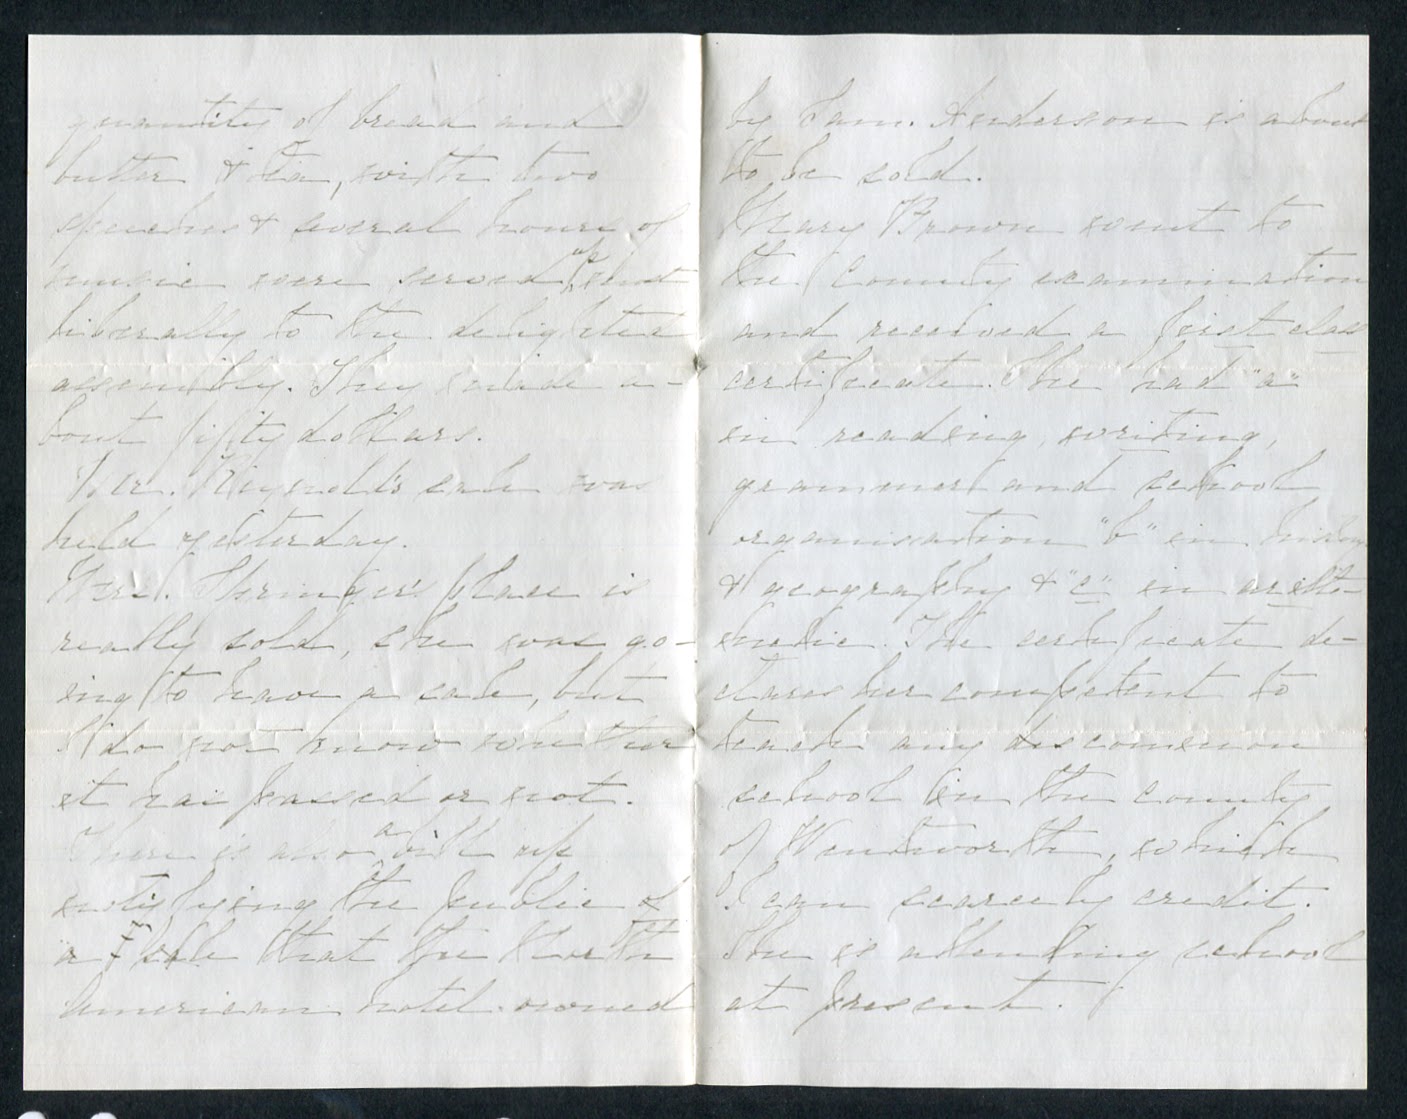 quantity of bread and
butter & tea, with two
speeches & several hours of
music were served up, most
liberally to the delighted
assembly. They made a-
bout fifty dollars.
Mr. Reynold's sale was
held yesterday.
Mrs. Springer's place is
really sold, she was go-
ing to have a sale, but
I do not know whether
it has passed or not.
There is also a bill up
notifying the public of
a sale that the North
American hotel owned
by Sam. Anderson is about
to be sold.
Mary Brown went to
the County examination
and received a first class
certificate. She had "a"
in reading, writing,
grammar and school
organisation "b" in history
& geography & "c" in arith-
metic. The certificate de-
clares her competent to
teach any common
school in the county
of Wentworth, which
I can scarcely credit.
She is attending school
at present.